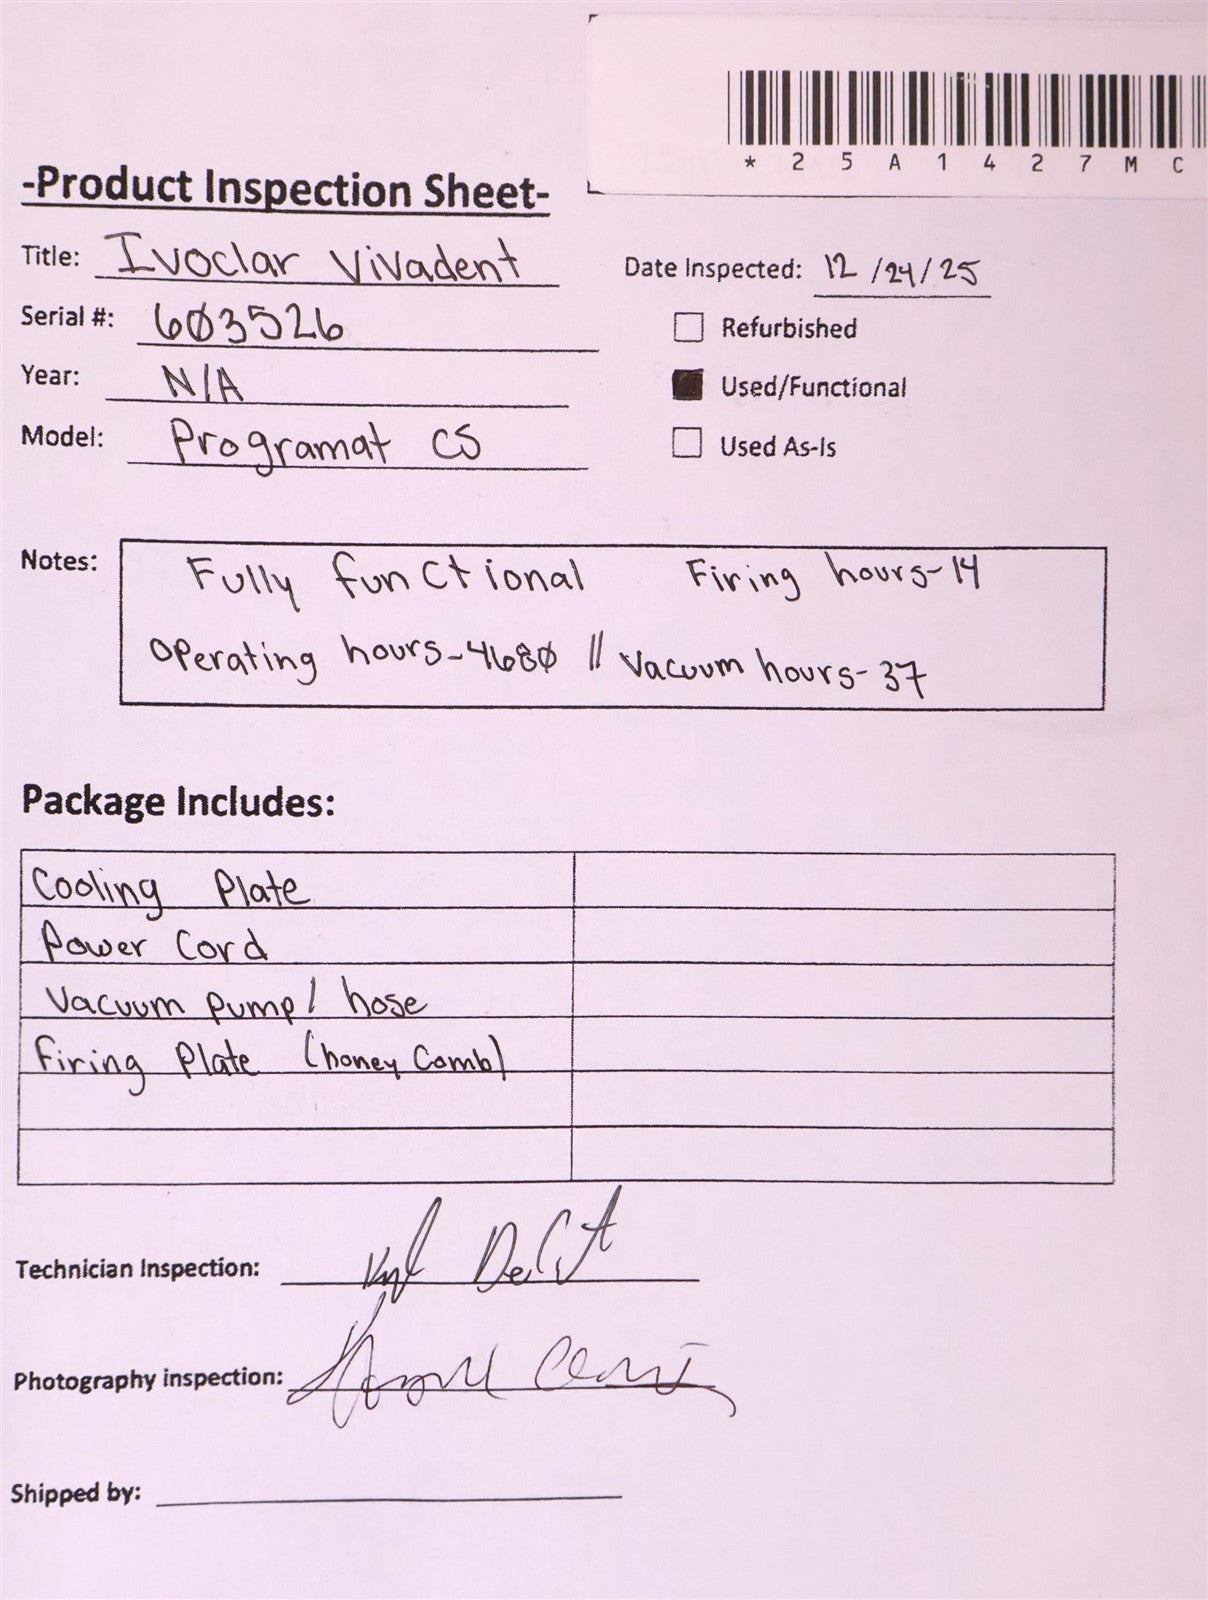 * 2 5 A 1 4 2 7 M C
-Product Inspection Sheet-
Title: Ivoclar Vivadent
Date Inspected: 12/24/25
Serial #: 603526
Refurbished
Year: N/A
Used/Functional
Model: Programat CS
Used As-Is
Notes: Fully functional Firing hours-14
Operating hours-4680 // Vacuum hours-37
Package Includes:
Cooling Plate
Power Cord
Vacuum pump/ hose
Firing Plate (honey Comb)
Technician Inspection:
Photography inspection:
Shipped by: